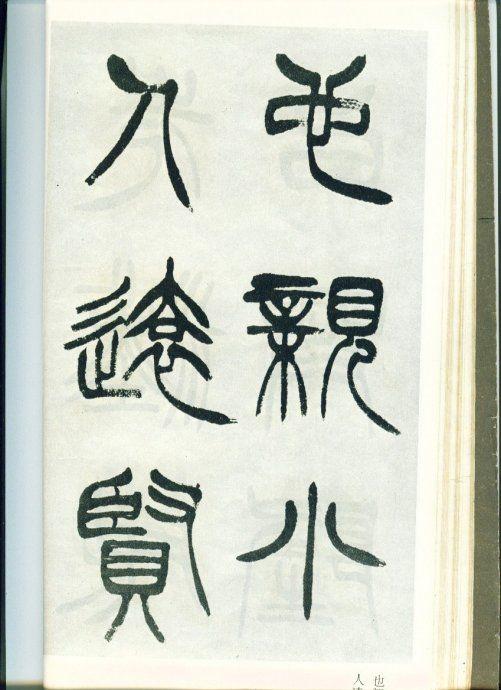 也親小
人遠賢
也
人遠